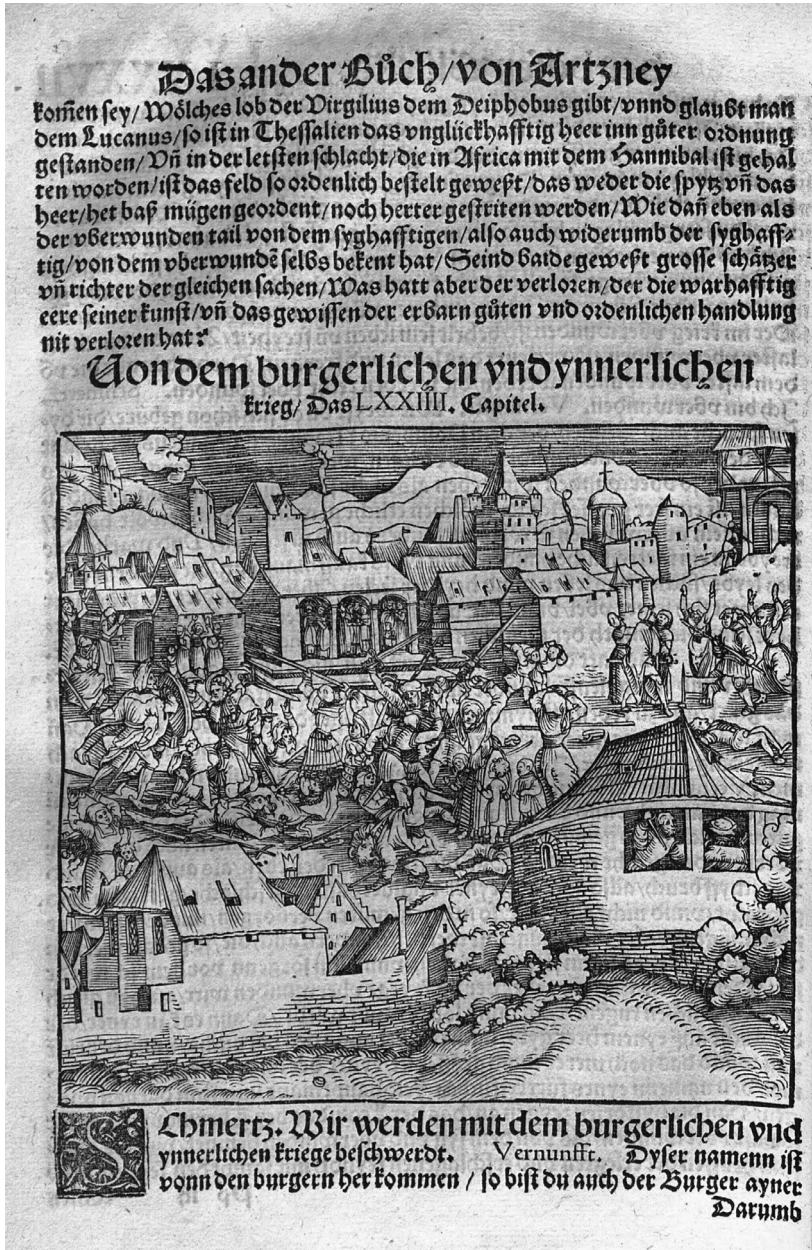 Das ander Bůch/von Artzney
kom̃en sey/Wölches lob der Virgilius dem Deiphobus gibt/vnnd glaubt man
dem Lucanus/so ist in Thessalien das vnglückhafftig heer inn gůter ordnung
gestanden/Vñ in der letsten schlacht/die in Africa mit dem Hannibal ist gehal
ten worden/ist das feld so ordenlich bestelt geweßt/das weder die spytz vñ das
heer/het baß mügen geordent/noch herter gestriten werden/Wie dañ eben als
der vberwunden tail von dem syghafftigen/also auch widerumb der syghaff⸗
tig/von dem vberwundẽ selbs bekent hat/Seind baide geweßt grosse schätzer
vñ richter der gleichen sachen/Was hatt aber der verloren/der die warhafftig
eere seiner kunst/vñ das gewissen der erbarn gůten vnd ordenlichen handlung
nit verloren hat?
Von dem burgerlichen vnd ynnerlichen
krieg/Das LXXIIII. Capitel.
SChmertz. Wir werden mit dem burgerlichen vnd
ynnerlichen kriege beschwerdt. Vernunfft. Dyser namenn ist
vonn den burgern her kommen/so bist du auch der Burger ayner
Darumb